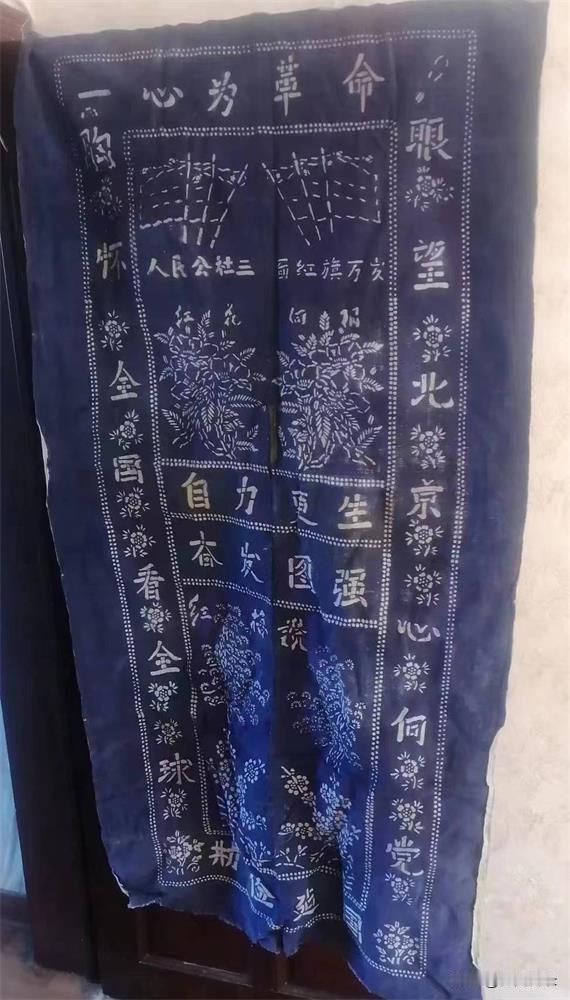 一心为革命
眼望北京心向党
胸怀全国看全球
人民公社三面红旗万岁
红花向阳
自力更生
奋发图强
红梅赞
勤俭